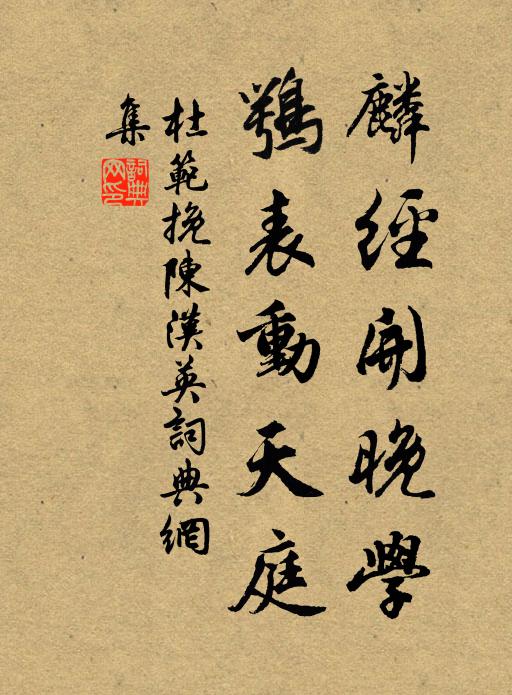 麟經開晚學
鶚表動天庭
杜範挽陳漢英詞典網
集
詞典
网印